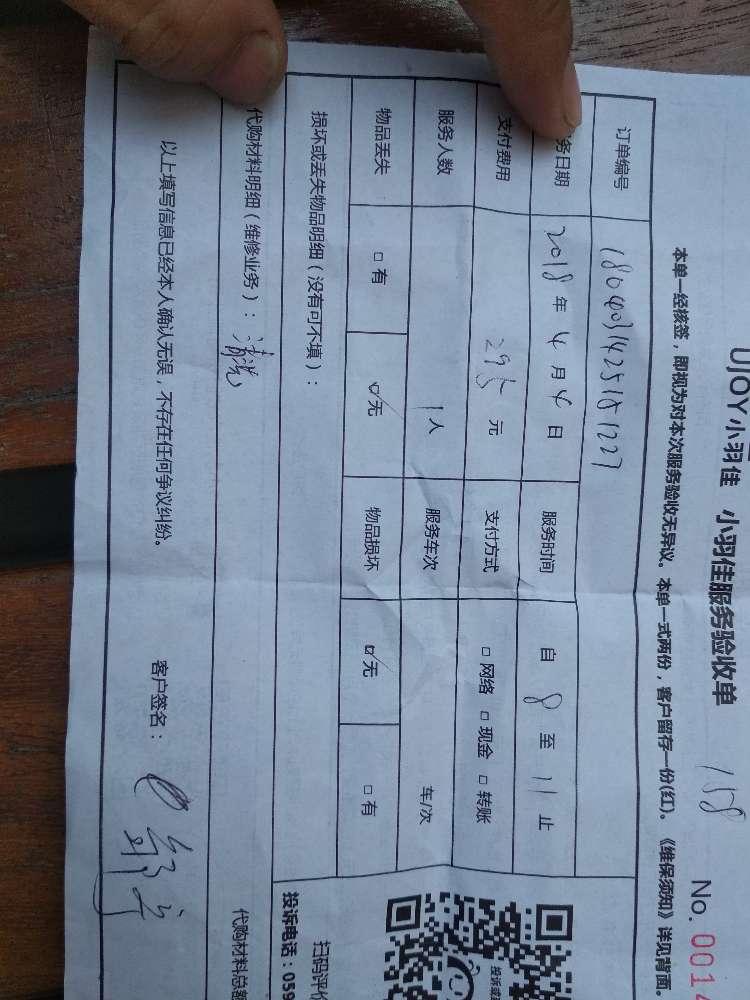 UJOY小羽佳 小羽佳服务验收单
158
No. 001
本单一经核签，即视为对本次服务验收无异议。本单一式两份，客户留存一份(红)。《维保须知》详见背面
订单编号 1804031425151227
务日期 2018年4月4日 服务时间 自8至11止
支付费用 295元 支付方式 □网络 □现金 □转账
服务人数 1人 服务车次 车/次
物品丢失 □有 ☑无 物品损坏 ☑无 □有
损坏或丢失物品明细（没有可不填）：
代购材料明细（维修业务）：清洗
代购材料总
以上填写信息已经本人确认无误，不存在任何争议纠纷。 客户签名：
投诉或
扫码评价
投诉电话：059